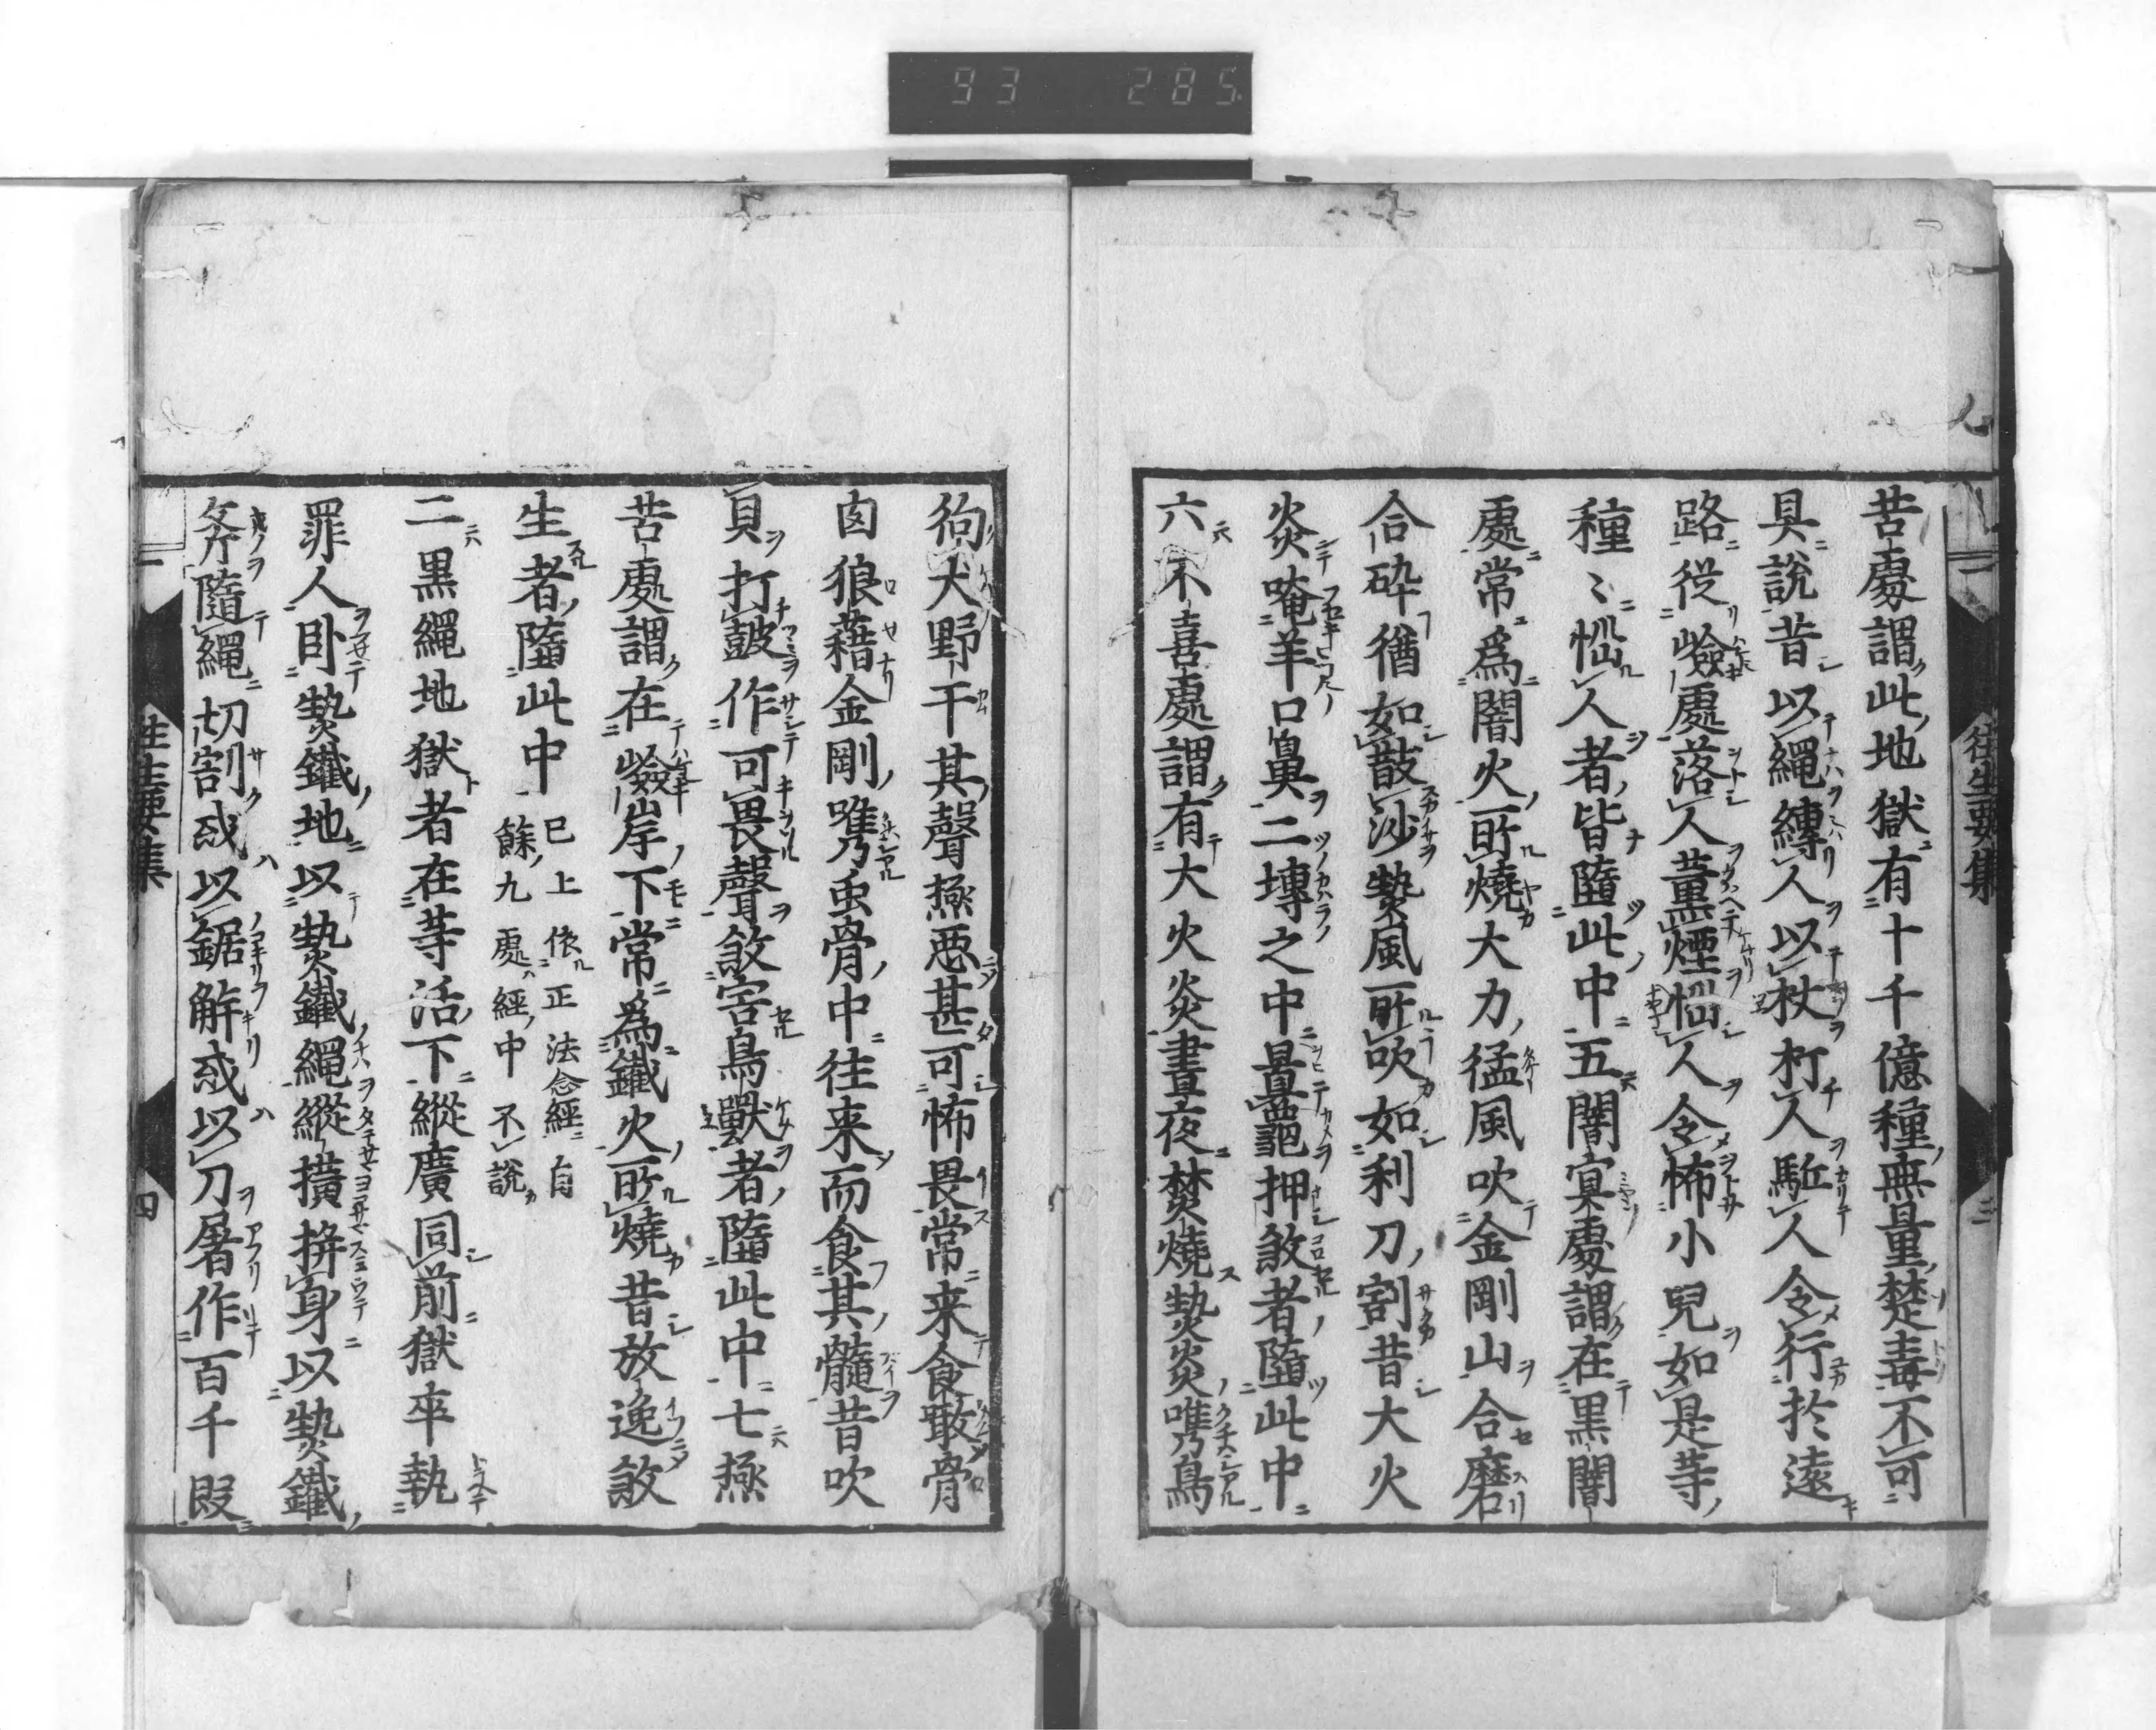 93 285
往生要集 三
苦處謂此地獄有十千億種無量楚毒不可
具説昔以繩縛人以杖打人駈人令行於遠
路從嶮處落人薰煙惱人令怖小兒如是等
種〻惱人者皆墮此中五闇冥處謂在黒闇
處常爲闇火所燒大力猛風吹金剛山合磨
合碎猶如散沙𤍠風所吹如利刀割昔大火
炎唵羊口鼻二塼之中置龜押煞者墮此中
六不喜處謂有大火炎晝夜焚燒𤍠炎𭊌鳥
狗犬野干其聲極惡甚可怖畏常来食噉骨
肉狼藉金剛𭊌虫骨中往来而食其髓昔吹
貝打鼓作可畏聲煞害鳥獸者墮此中七極
苦處謂在嶮岸下常爲鐵火所燒昔放逸煞
生者墮此中
已上依正法念經自
餘九處經中不説
二黒繩地獄者在等活下縱廣同前獄卒執
罪人臥𤍠鐵地以𤍠鐵繩縱横拼身以𤍠鐵
斧隨繩切割或以鋸解或以刀屠作百千段
往生要集 四